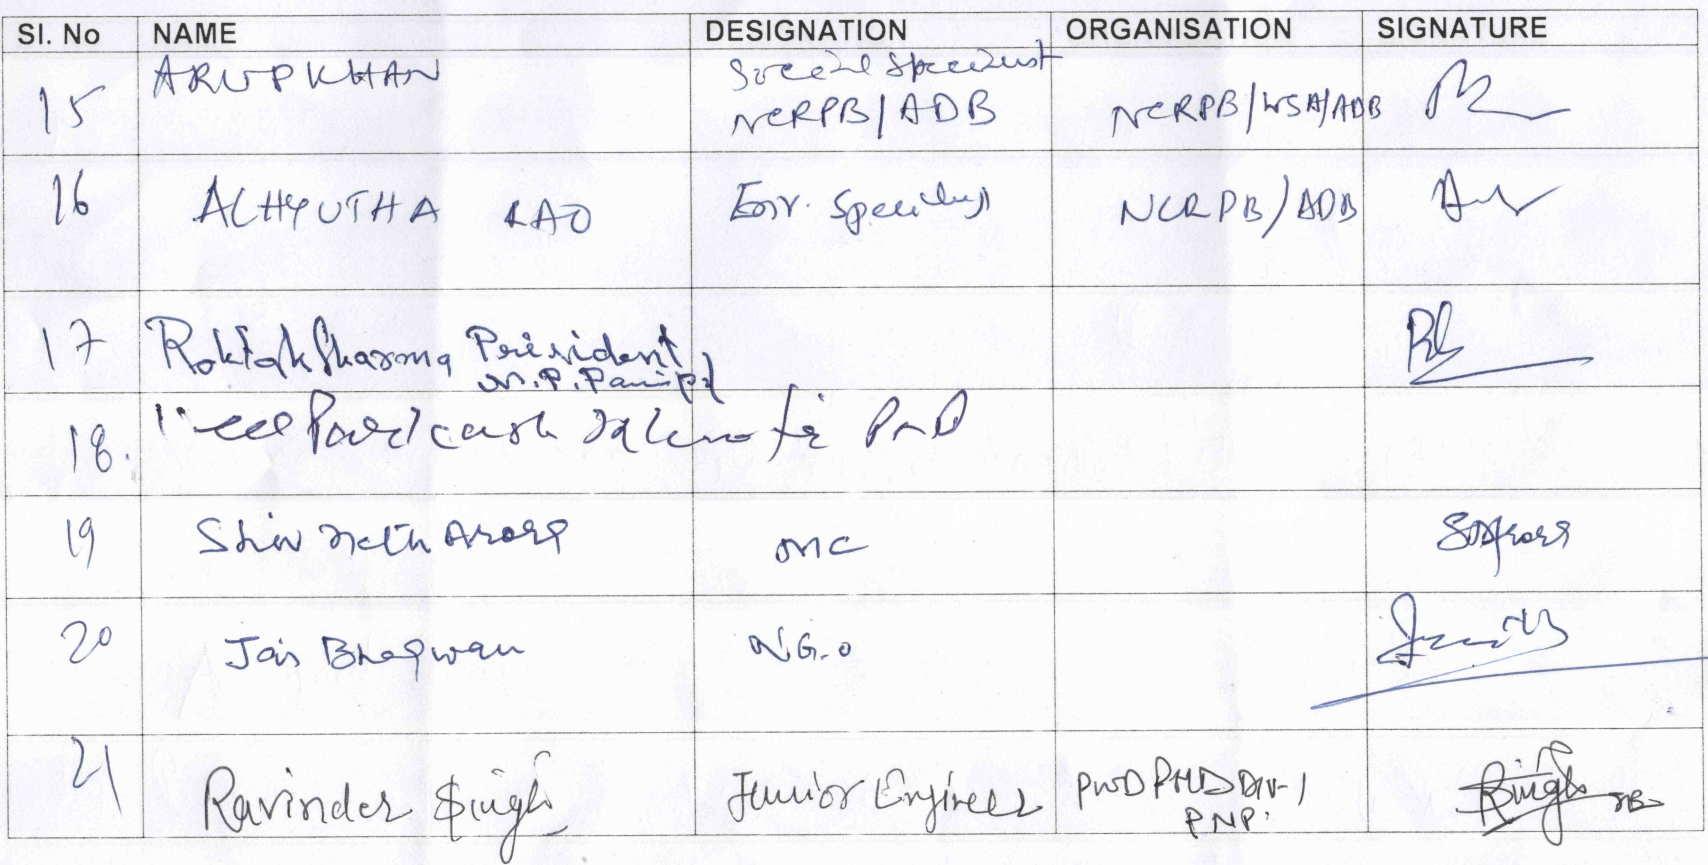 SI. No NAME DESIGNATION ORGANISATION SIGNATURE
15 ARUP KHAN Social Specialist
NCRPB/ADB NCRPB/WSA/ADB
16 ACHYUTHA RAO Env. Specialist NCRPB/ADB
17 Roktak Sharma President
M.P. Panipat
18.
19 Shiv Nath Arora MC
20 Jai Bhagwan N G.O
21 Ravinder Singh Junior Engineer PWD PHD Div-1
PNP.